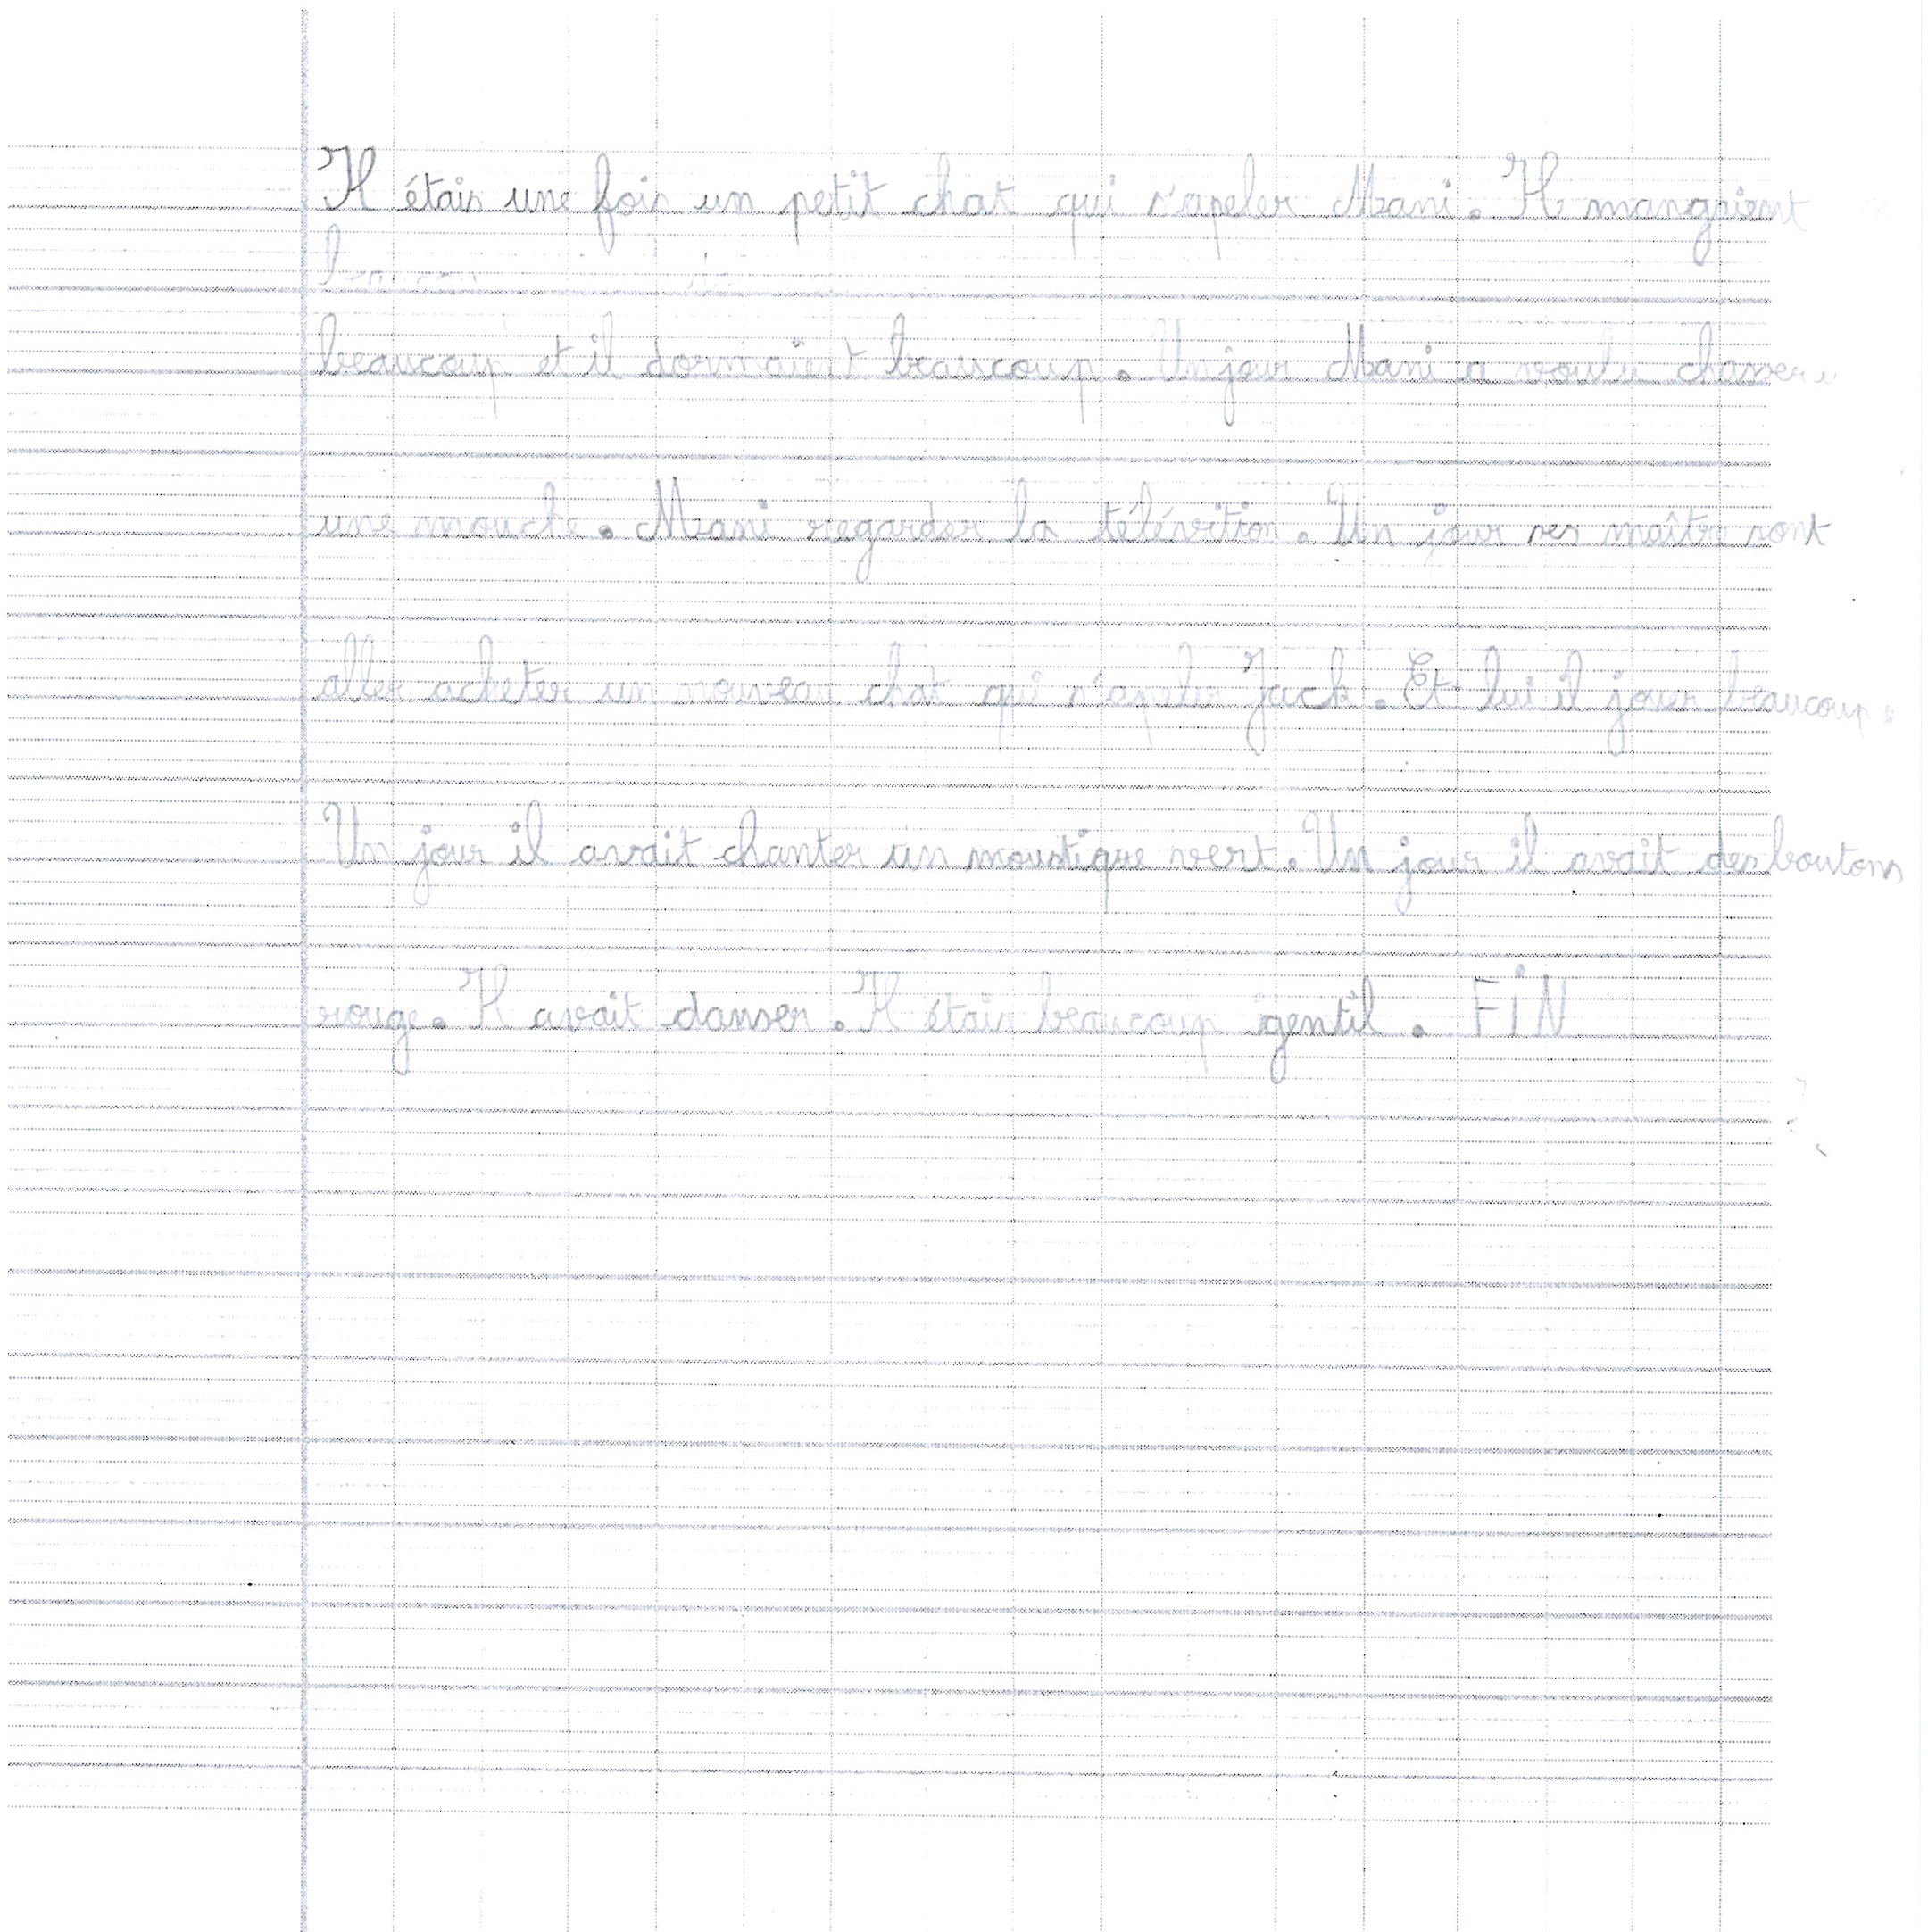 Il étais une fois un petit chat qui s'apeler Mani. Il mangaient
beaucoup et il dormaient beaucoup. Un jour Mani a voulu chasser
une mouche. Mani regarder la télévition. Un jour ses maître sont
aller acheter un nouveau chat qui s'apeler Jack. Et lui il jouer beaucoup.
Un jour il avait chanter un moustique vert. Un jour il avait des boutons
rouge. Il avait danser. Il étais beaucoup gentil. FiN